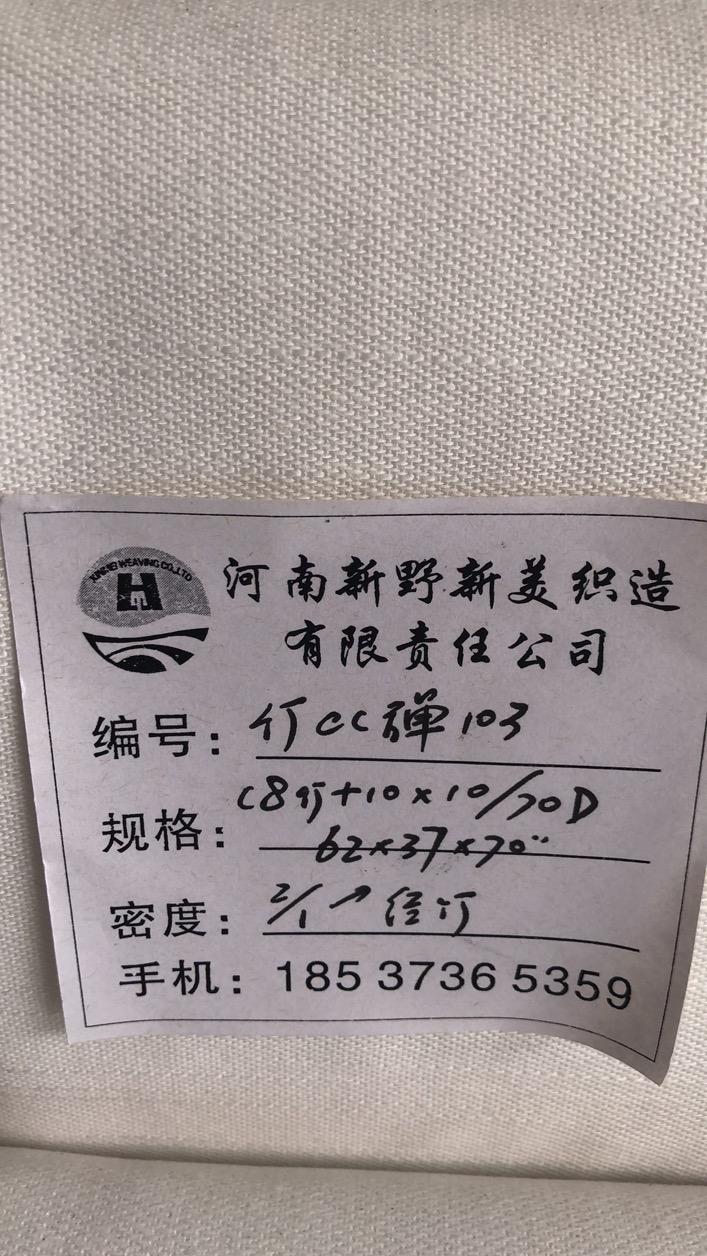 XINMEI WEAVING CO.,LTD
河南新野新美织造
有限责任公司
编号：竹CC弹103
规格：C8竹+10×10/70D
62×37×70"
密度：2/1↗ 经竹
手机：185 3736 5359